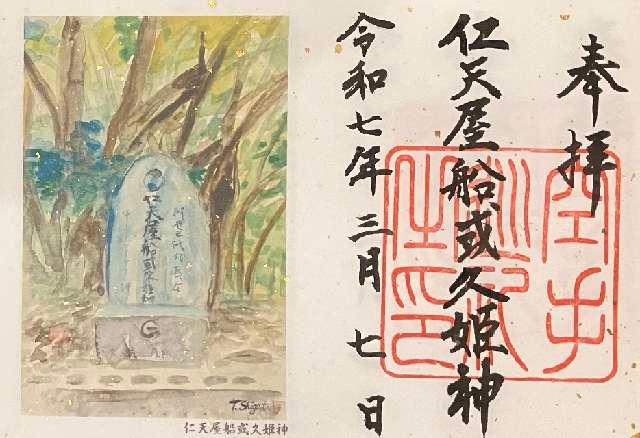 奉拝
仁天屋船或久姫神
令和七年三月七日
仁天屋船或久姫神
仁天屋船或久姫神